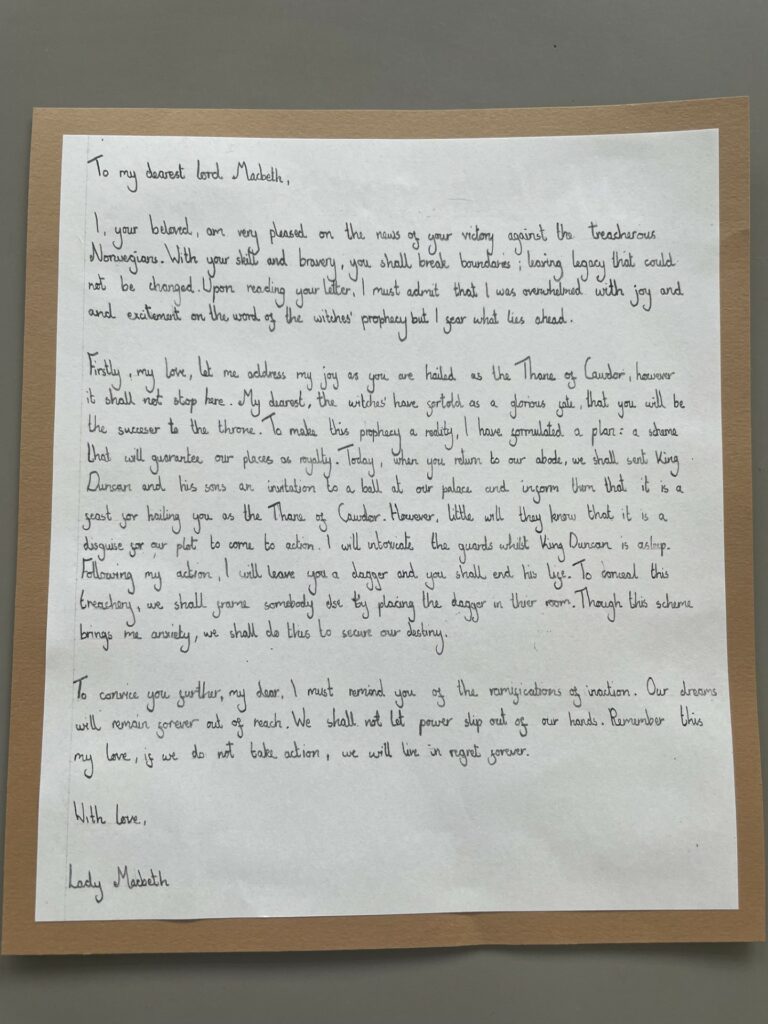 To my dearest lord Macbeth,
I, your beloved, am very pleased on the news of your victory against the treacherous
Norwegians. With your skill and bravery, you shall break boundaries ; leaving legacy that could
not be changed. Upon reading your letter, I must admit that I was overwhelmed with joy and
and excitement on the word of the witches' prophecy but I fear what lies ahead.
Firstly, my love, let me address my joy as you are hailed as the Thane of Cawdor, however
it shall not stop here. My dearest, the witches' have fortold as a glorious fate, that you will be
the succeser to the throne. To make this prophecy a reality, I have formulated a plan: a scheme
that will guarantee our places as royalty. Today, when you return to our abode, we shall sent King
Duncan and his sons an invitation to a ball at our palace and inform them that it is a
feast for hailing you as the Thane of Cawdor. However, little will they know that it is a
disguise for our plot to come to action. I will intoxicate the guards whilst King Duncan is asleep.
Following my action, I will leave you a dagger and you shall end his life. To conceal this
treachery, we shall frame somebody else by placing the dagger in thier room. Though this scheme
brings me anxiety, we shall do this to secure our destiny.
To convice you further, my dear, I must remind you of the ramifications of inaction. Our dreams
will remain forever out of reach. We shall not let power slip out of our hands. Remember this
my love, if we do not take action, we will live in regret forever.
With love,
Lady Macbeth